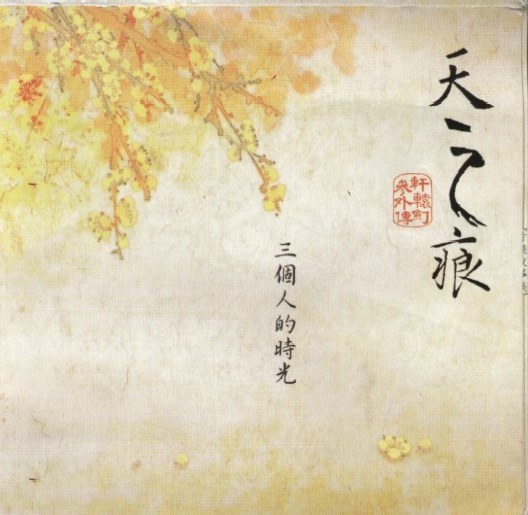 天之痕
軒轅劍
參外傳
三個人的時光